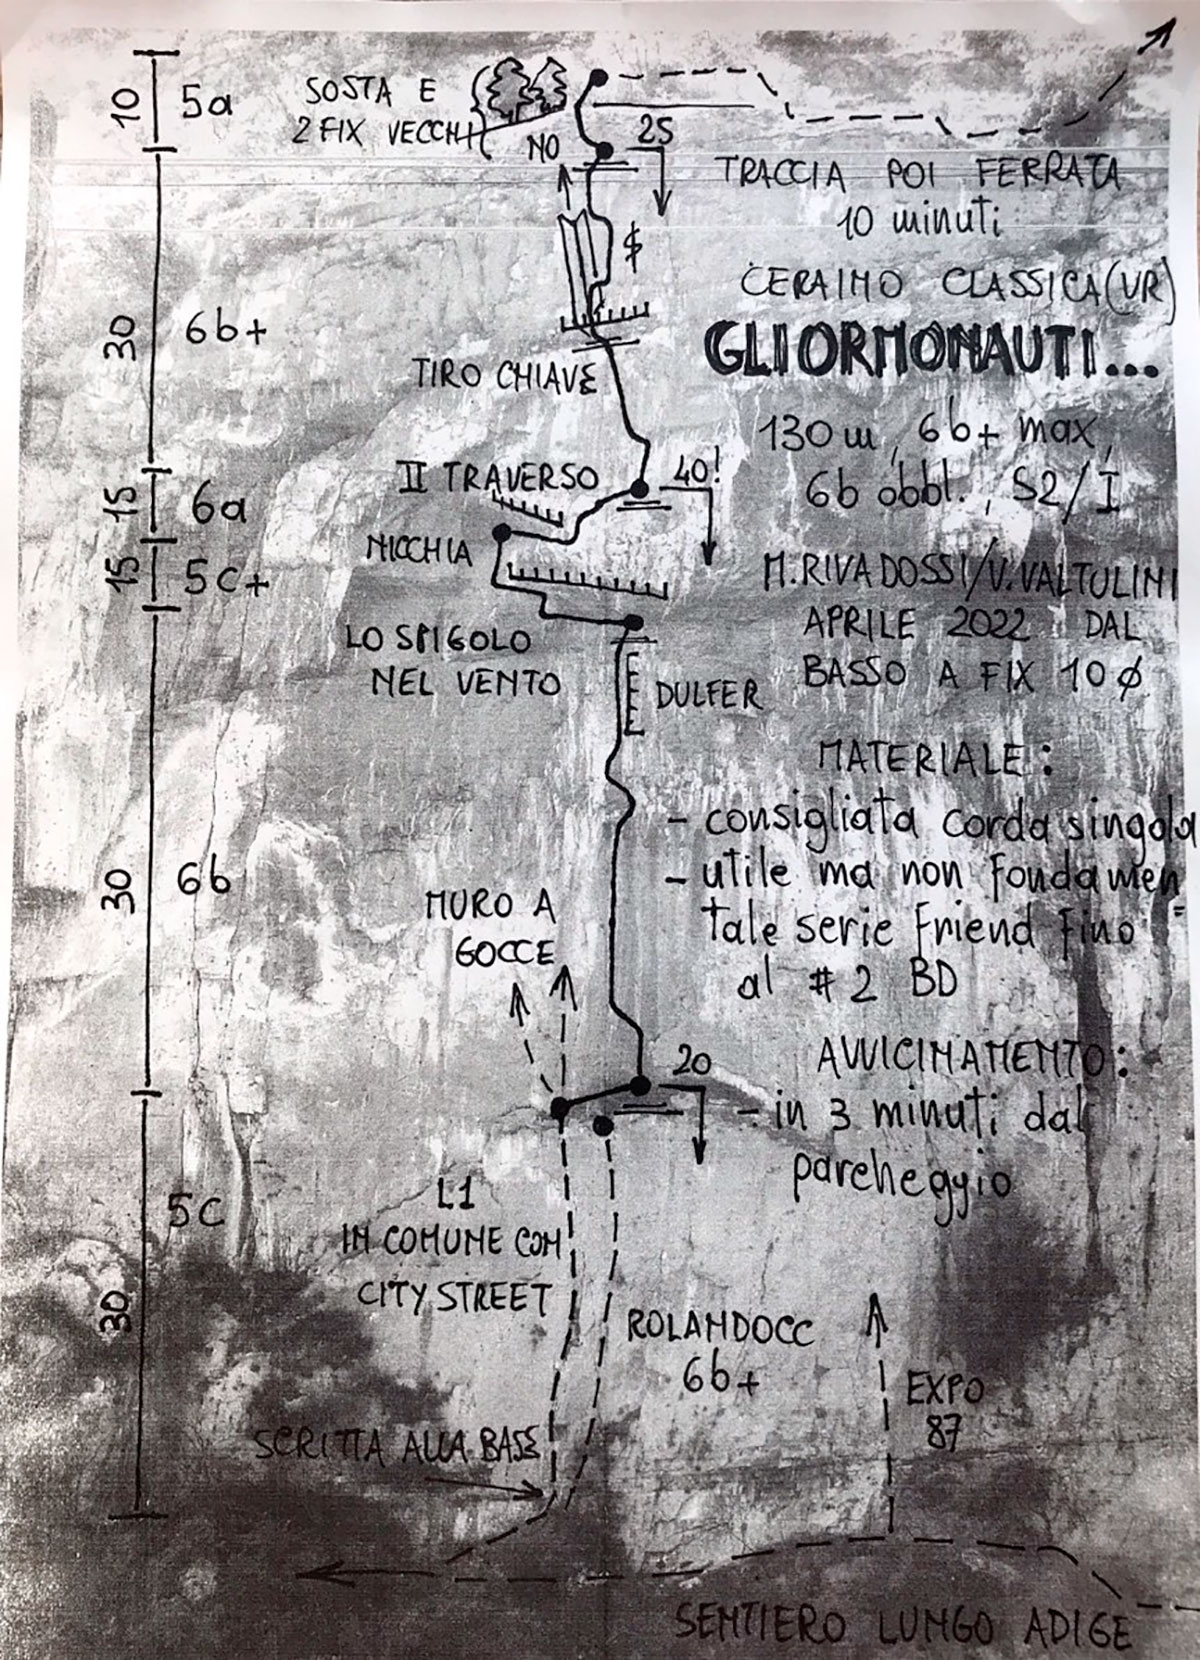 10
5a
SOSTA E
2 FIX VECCHI
NO
25
TRACCIA POI FERRATA
10 minuti
$
CERAINO CLASSICA (VR)
GLI ORMONAUTI...
30
6b+
TIRO CHIAVE
130 m, 6b+ max,
6b obbl., S2/I
II TRAVERSO
40!
15
6a
NICCHIA
15
5c+
M. RIVADOSSI/V. VALTULINI
APRILE 2022 DAL
BASSO A FIX 10 ϕ
LO SPIGOLO
NEL VENTO
DULFER
MATERIALE:
- consigliata corda singola
- utile ma non fondamen
tale serie friend fino
al #2 BD
30
6b
MURO A
GOCCE
20
AVVICINAMENTO:
- in 3 minuti dal
parcheggio
5c
30
L1
IN COMUNE CON
CITY STREET
ROLANDOCC
6b+
EXPO
87
SCRITTA ALLA BASE
SENTIERO LUNGO ADIGE